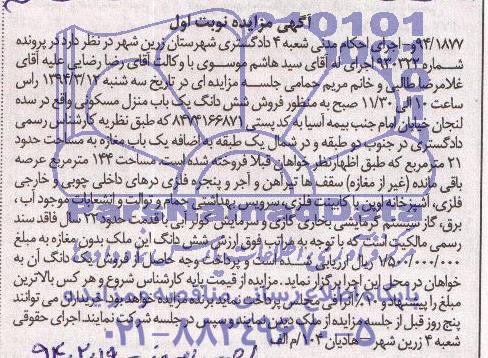 آگهی مزایده نوبت اول
۹۴/۱۸۷۷و- اجرای احکام مدنی شعبه ۴ دادگستری شهرستان زرین شهر در نظر دارد در پرونده
شماره ۹۳۰۳۲۲ اجرای له آقای سید هاشم موسوی با وکالت آقای رضا رضایی علیه آقای
غلامرضا طالبی و خانم مریم حمامی جلسه مزایده ای در تاریخ سه شنبه ۱۳۹۴/۳/۱۲ راس
ساعت ۱۰ الی ۱۱/۳۰ صبح به منظور فروش شش دانگ یک باب منزل مسکونی واقع در سده
لنجان خیابان امام جنب بیمه آسیا به کدپستی ۸۴۷۴۱۶۶۸۷۱ که طبق نظریه کارشناس رسمی
دادگستری در جنوب دو طبقه و در شمال یک طبقه به اضافه یک باب مغازه به مساحت حدود
۲۱ مترمربع که طبق اظهارنظر خواهان قبلا فروخته شده است. مساحت ۱۴۴ مترمربع عرصه
باقی مانده (غیر از مغازه) سقف ها تیرآهن و آجر و پنجره فلزی درهای داخلی چوبی و خارجی
فلزی، آشپزخانه اوپن با کابینت فلزی، سرویس بهداشتی حمام و توالت و انشعابات موجود آب،
برق، گاز سیستم گرمایشی بخاری گازی و سرمایش کولر آبی با قدمت حدود ۲۲ سال فاقد سند
رسمی مالکیت است که با توجه به مراتب فوق ارزش شش دانگ این ملک بدون مغازه به مبلغ
۱/۵۰۰/۰۰۰/۰۰۰ ریال ارزیابی شده است و پرداخت وجه حاصل از فروش یک دانگ آن به
خواهان در محل این اجرا برگزار نماید. مزایده از قیمت پایه کارشناس شروع و هر کس بالاترین
مبلغ را پیشنهاد و ۱۰٪ آنرا فی المجلس پرداخت نماید برنده مزایده خواهد بود خریداران می توانند
پنج روز قبل از جلسه مزایده از ملک دیدن نمایند و سپس در جلسه شرکت نمایند. اجرای حقوقی
شعبه ۴ زرین شهر - هادیان ۱۰۴/م الف
ParsNamadData
۰۲۱-۸۸۳۴۹۶۷۰-۵